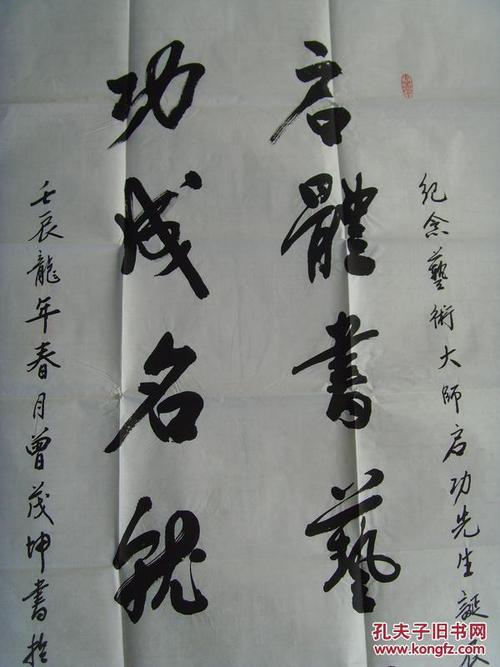 紀念藝術大師启功先生誕辰
启體書藝
功成名就
壬辰龍年春月曾茂坤書於
孔夫子旧书网
www.kongfz.com